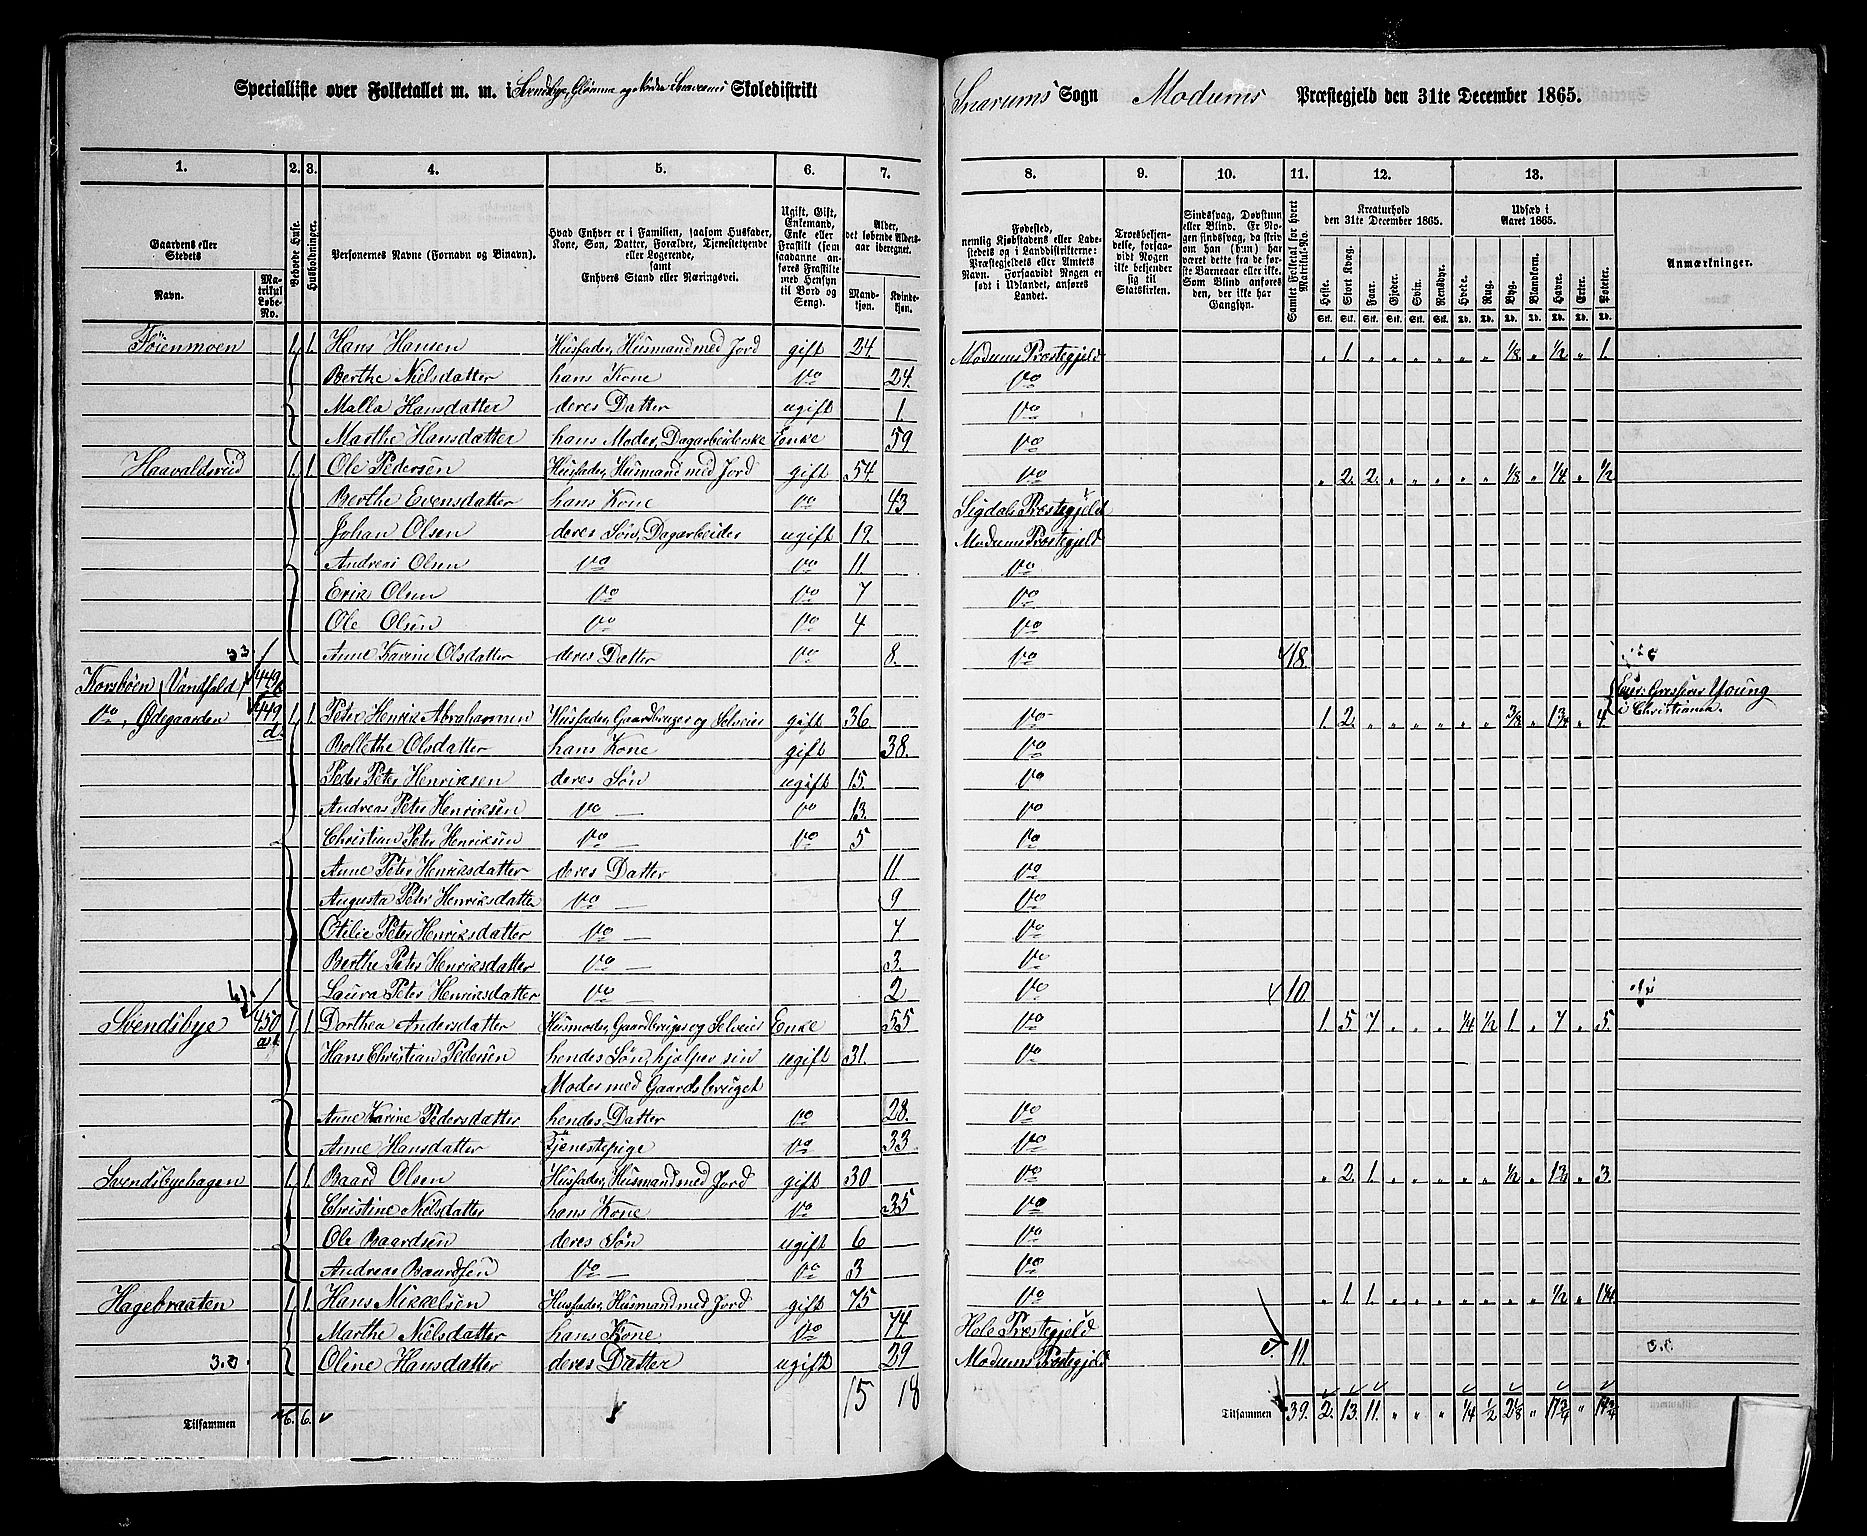 Specialliste over Folketallet m. m. i Svendsbye, Glømme og Nordre Snarums Skoledistrikt
Snarums Sogn Modums Præstegjeld den 31te December 1865.
1. 2. 3. 4. 5. 6. 7. 8. 9. 10. 11. 12. 13.
Gaardens eller Stedets
Navn.
Matrikul Løbe-No.
Beboede Huse.
Husholdninger.
Personernes Navne (Fornavn og Binavn).
Hvad Enhver er i Familien, saasom Husfader, Kone, Søn, Datter, Forældre, Tjenestetyende eller Logerende, samt Enhvers Stand eller Næringsvei.
Ugift, Gift, Enkemand, Enke eller Fraskilt (som saadanne anføres Fraskilte med Hensyn til Bord og Seng).
Alder, det løbende Aldersaar iberegnet.
Mandkjøn. Kvindekjøn.
Fødested, nemlig Kjøbstadens eller Ladestedets og i Landdistrikterne: Præstegjeldets eller Amtets Navn. Forsaavidt Nogen er født i Udlandet, anføres Landet.
Troesbekjendelse, forsaavidt Nogen ikke bekjender sig til Statskirken.
Sindssvag, Døvstum eller Blind. Er Nogen sindssvag, da skriv om han (hun) har været dette fra de første Barneaar eller ikke. Som Blind anføres den, der ikke har Gangsyn.
Samlet Folketal for hvert Matrikul-No.
Kreaturhold den 31te December 1865.
Heste. Stort Kvæg. Faar. Gjeder. Svin. Rensdyr.
Udsæd i Aaret 1865.
Hvede. Rug. Byg. Blandkorn. Havre. Erter. Poteter.
Stk. Stk. Stk. Stk. Stk. Stk. Td. Td. Td. Td. Td. Td. Td.
Anmærkninger.
Føienmoen 1. 1. Hans Hansen Husfader, Husmand med Jord gift 24. Modums Præstegjeld „ 1. „ „ „ „ „ „ 1/8 „ 1/2 „ 1.
Berthe Nielsdatter hans Kone Do 24. Do
Malla Hansdatter deres Datter ugift 1 Do
Marthe Hansdatter hans Moder, Dagarbeiderske Enke 59 Do
Haavaldsrud 1. 1. Ole Pedersen Husfader, Husmand med Jord gift 54. Do „ 2. 2. „ „ „ „ „ 1/8 „ 1/4 „ 1/2
Berthe Evensdatter hans Kone Do 43 Sigdals Præstegjeld
Johan Olsen deres Søn, Dagarbeider ugift 19. Modums Præstegjeld
Andreas Olsen Do Do 11 Do
Erik Olsen Do Do 7 Do
Ole Olsen Do Do 4 Do
33. Anne Karine Olsdatter deres Datter Do 8. Do 18
Korsbøen (Vandfald) 449
Eier: Grosserer Young
i Christiania.
Do, Ødegaarden 449 d. 1. 1. Peter Henrik Abrahamsen Husfader, Gaardbruger og Selveier gift 36 Do 1. 2. „ „ „ „ „ „ 3/8 „ 1 3/4 „ 4.
Bollethe Olsdatter hans Kone gift 38. Do
Peder Peter Henriksen deres Søn ugift 15. Do
Andreas Peter Henriksen Do Do 13. Do
Christian Peter Henriksen Do Do 5 Do
Anne Peter Henriksdatter deres Datter 11. Do
Augusta Peter Henriksdatter Do 9 Do
Otilie Peter Henriksdatter Do 7 Do
Berthe Peter Henriksdatter Do 3. Do
Laura Peter Henriksdatter Do 2 Do 10.
Svendsbye 450 a. 1. 1. Dorthea Andersdatter Husmoder, Gaardbruger og Selveier Enke 55 Do 1. 5 7 „ „ „ 1/4 1/2 1 „ 7. „ 5.
Hans Christian Pedersen hendes Søn, hjelper sin ugift 31. Do
Moder med Gaardsbruget
Anne Karine Pedersdatter hendes Datter Do 28. Do
Anne Hansdatter Tjenestepige Do 33 Do
Svendsbyehagen 1. 1. Baard Olsen Husfader, Husmand med Jord gift 30 Do „ 2. 1. „ „ „ „ „ 1/2 „ „ 3.
Christine Nielsdatter hans Kone Do 35 Do
Ole Baardsen deres Søn ugift 6 Do
Andreas Baardsen Do Do 3 Do
Hagebraaten 1. 1. Hans Mikkelsen Husfader, Husmand med Jord gift 75 Do „ 1. 1. „ „ „ „ „ „ „ 1/2 „
Marthe Nielsdatter hans Kone Do 74. Hole Præstegjeld
Oline Hansdatter deres Datter ugift 29 Modums Præstegjeld 11.
15 18
Tilsammen 6. 6.
Tilsammen 39. 2. 13. 11. „ „ „ 1/4 1/2 2 1/8 „ 17 3/4 „